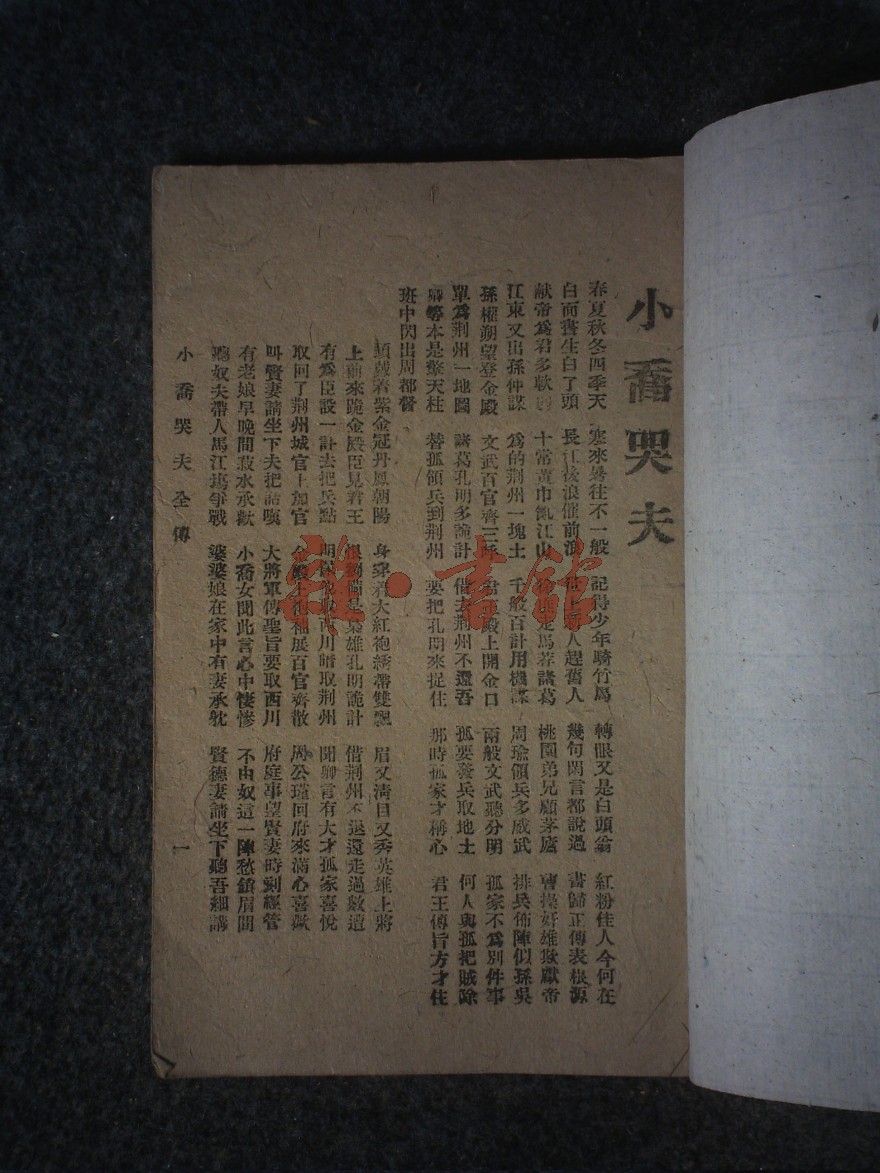 小喬哭夫
春夏秋冬四季天 寒來暑往不一般 記得少年騎竹馬 轉眼又是白頭翁 紅粉佳人今何在
白面書生白了頭 長江後浪催前浪 人趕舊人 幾句閑言都說過 書歸正傳表根源
献帝爲君多軟 十常黃巾亂江山 走馬荐諸葛 桃園弟兄顧茅廬 曹操奸雄欺獻帝
江東又出孫仲謀 爲的荆州一塊土 千般百計用機謀 周瑜領兵多威武 排兵佈陣似孫吳
孫權朔望登金殿 文武百官齊三呼 君王殿上開金口 兩般文武聽分明 孤家不爲別件事
單爲荆州一地圖 諸葛孔明多詭計 借去荆州不還吾 孤要發兵取地土 何人與孤把賊除
卿等本是擎天柱 替孤領兵到荆州 要把孔明來捉住 那時孤家才稱心 君王傳旨方才住
班中閃出周都督
頭戴着紫金冠丹鳳朝陽 身穿着大紅袍綉帶雙飄 眉又清目又秀英雄上將
上前來跪金殿臣見君王 恨劉備是梟雄孔明詭計 借荆州不退還走過數遭
有爲臣設一計去把兵點 取西川暗取荆州 聞卿言有大才孤家喜悅
取回了荆州城官上加官 金殿上袍袖展百官齊散 周公瑾回府來滿心喜歡
叫賢妻請坐下夫把話嘆 大將軍傳聖旨要取西川 府庭事望賢妻時刻經管
有老娘早晚間菽水承歡 小喬女聞此言心中悽慘 不由奴這一陣愁鎖眉間
聽奴夫帶人馬江塲爭戰 婆婆娘在家中有妻承躭 賢德妻請坐下聽吾細講
小喬哭夫全傳
一
書·館